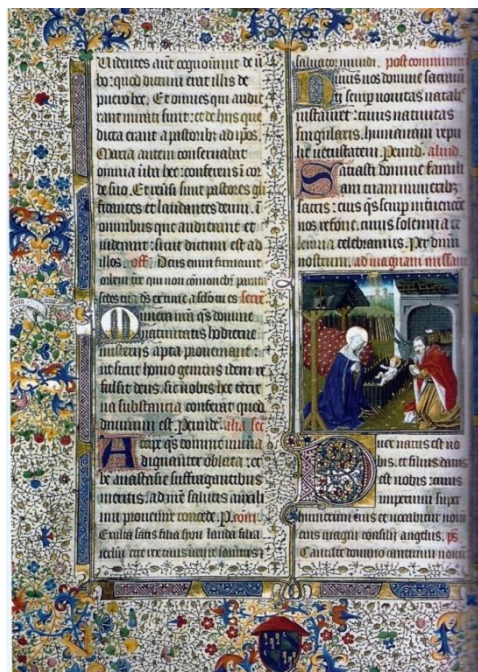 Uidentes aut cognouerunt de u
bo: quod dictum erat illis de
puero hoc. Et omnes qui audie
rant mirati sunt: et de hiis que
dicta erant a pastoribz ad ipos.
Maria autem conseruabat
omnia uba hec: conferens i cor
de suo. Et reusi sunt pastores glo
rificantes et laudantes deum. i
omnibus que audierant et
uiderant: sicut dictum est ad
illos. off. Deus enim firmauit
orbem tre qui non comoubit parata
sedes tua ds ex tunc a sclo tu es secre
Munera nra qs domine
natiuitatis hodierne
misterijs apta proueniant: ut
sicut homo genitus idem re
fulsit deus. sic nobis hec terre
na substantia conferat quod
diuinum est. Per eumde. alia sec
Accipe qs domine munera
dignanter oblata: et
be anastasie suffragantibus
meritis. ad nre salutis auxili
um prouenire concede. P. com
Exulta satis filia syon lauda filia
ierlm ecce rex tuus uenit sanctus z
saluator mundi. post communi
Huius nos domine sacram
ti semp nouitas natal
instauret: cuius natiuitas
singularis. humanam repu
lit uetustatem. Per eumd. aliud.
Satiasti domine famili
am tuam muneribz
sacris: eius qs semp interuentione
nos refoue. cuius solennia ce
lebramus. Per dnm
nostrum. ad magnam missam
Puer natus est no
bis. et filius datus
est nobis: cuius
imperium super
humerum eius et uocabitur nomen
eius magni consilij angelus. ps
Cantate domino canticum nouum